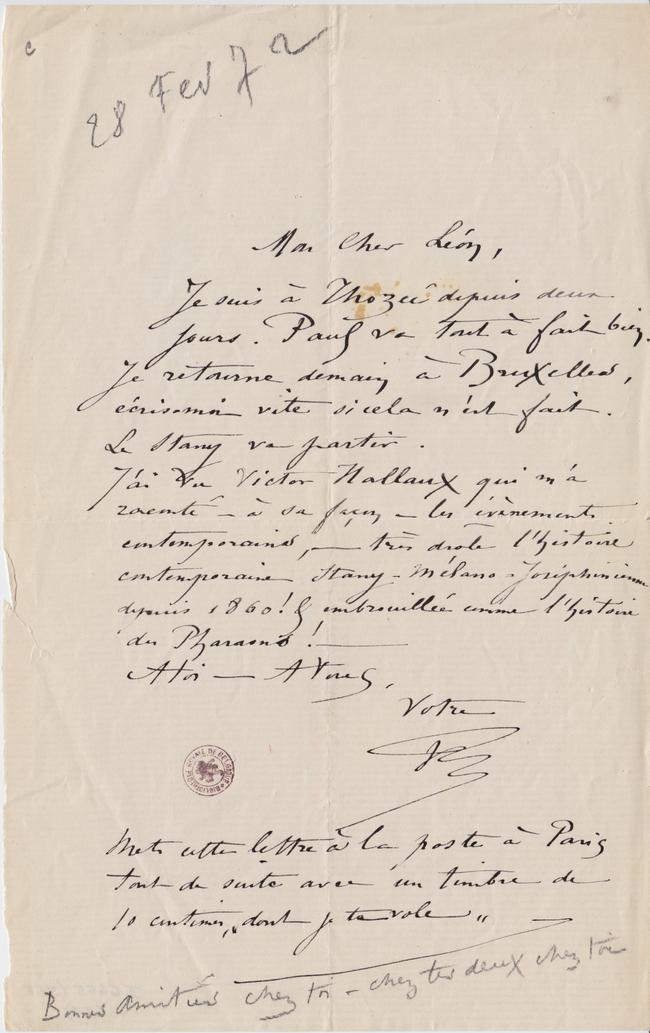 c
28 Fev 72
Mon Cher Léon,
Je suis à Thozée depuis deux
jours. Paul va tout à fait bien.
Je retourne demain à Bruxelles,
écrismoi vite si cela n'est fait.
Le Stany va partir.
J'ai vu Victor Hallaux qui m'a
raconté – à sa façon – les évènements
contemporains, – très drôle l'histoire
contemporaine Stany-Mélano-Joséphinienne
depuis 1860! & embrouillée comme l'histoire
des Pharaons! –
A toi – A vous,
Votre
BIBLIOTHÈQUE ROYALE DE BELGIQUE
Mets cette lettre à la poste à Paris
tout de suite avec un timbre de
10 centimes, „dont je te vole„ –
Bonnes amitiés chez toi – chez tes deux chez toi